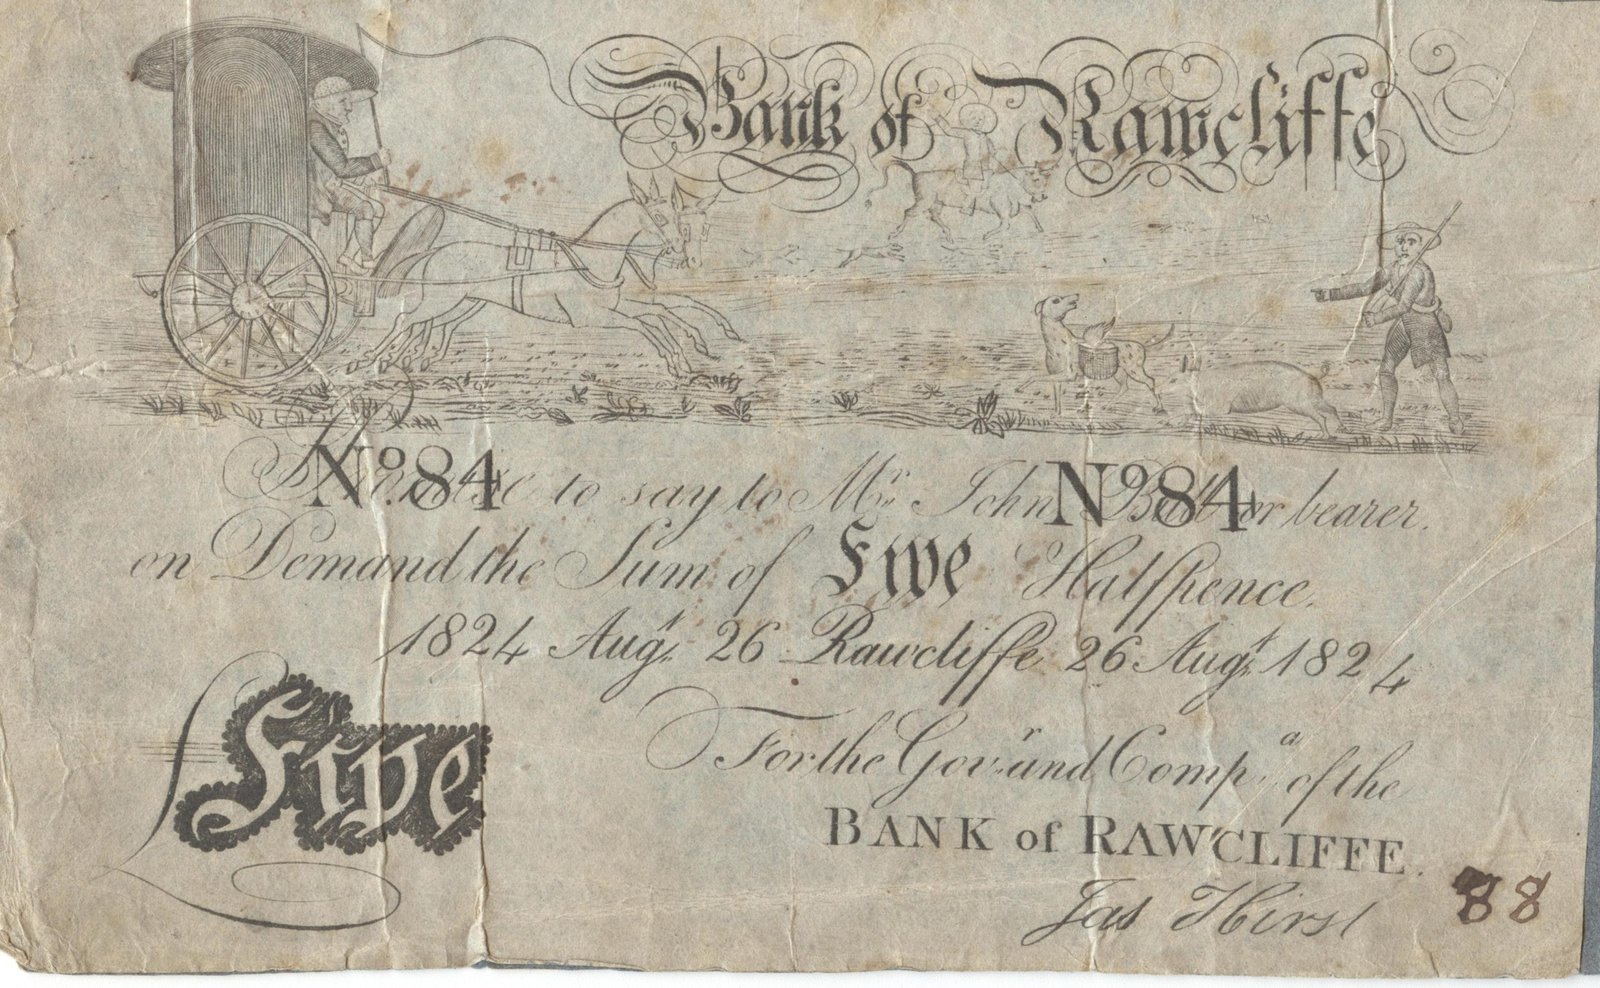 Bank of Rawcliffe
No. 84 No. 84
I Promise to say to Mr. John Bull or bearer.
on Demand the Sum of Five Halfpence.
1824 Augt. 26 Rawcliffe 26 Augt. 1824
For the Govr. and Compa. of the
Five
BANK of RAWCLIFFE.
Jas Hirst
88